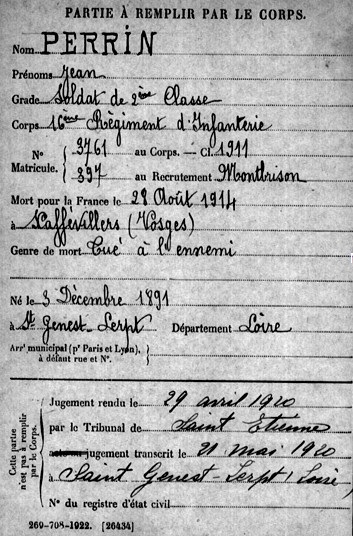 PARTIE À REMPLIR PAR LE CORPS.
Nom PERRIN
Prénoms Jean
Grade Soldat de 2ème Classe
Corps 16ème Régiment d'Infanterie
N° Matricule. { 3761 au Corps. — Cl. 1911
397 au Recrutement Montbrison
Mort pour la France le 28 Août 1914
à Xaffévillers (Vosges)
Genre de mort Tué à l'ennemi
Né le 3 Décembre 1891
à St Genest-Lerpt Département Loire
Arrt municipal (pr Paris et Lyon), à défaut rue et N°.
Cette partie n'est pas à remplir par le Corps.
Jugement rendu le 29 avril 1920
par le Tribunal de Saint Etienne
jugement transcrit le 21 mai 1920
à Saint Genest-Lerpt (Loire)
N° du registre d'état civil
269-708-1922. [26434]